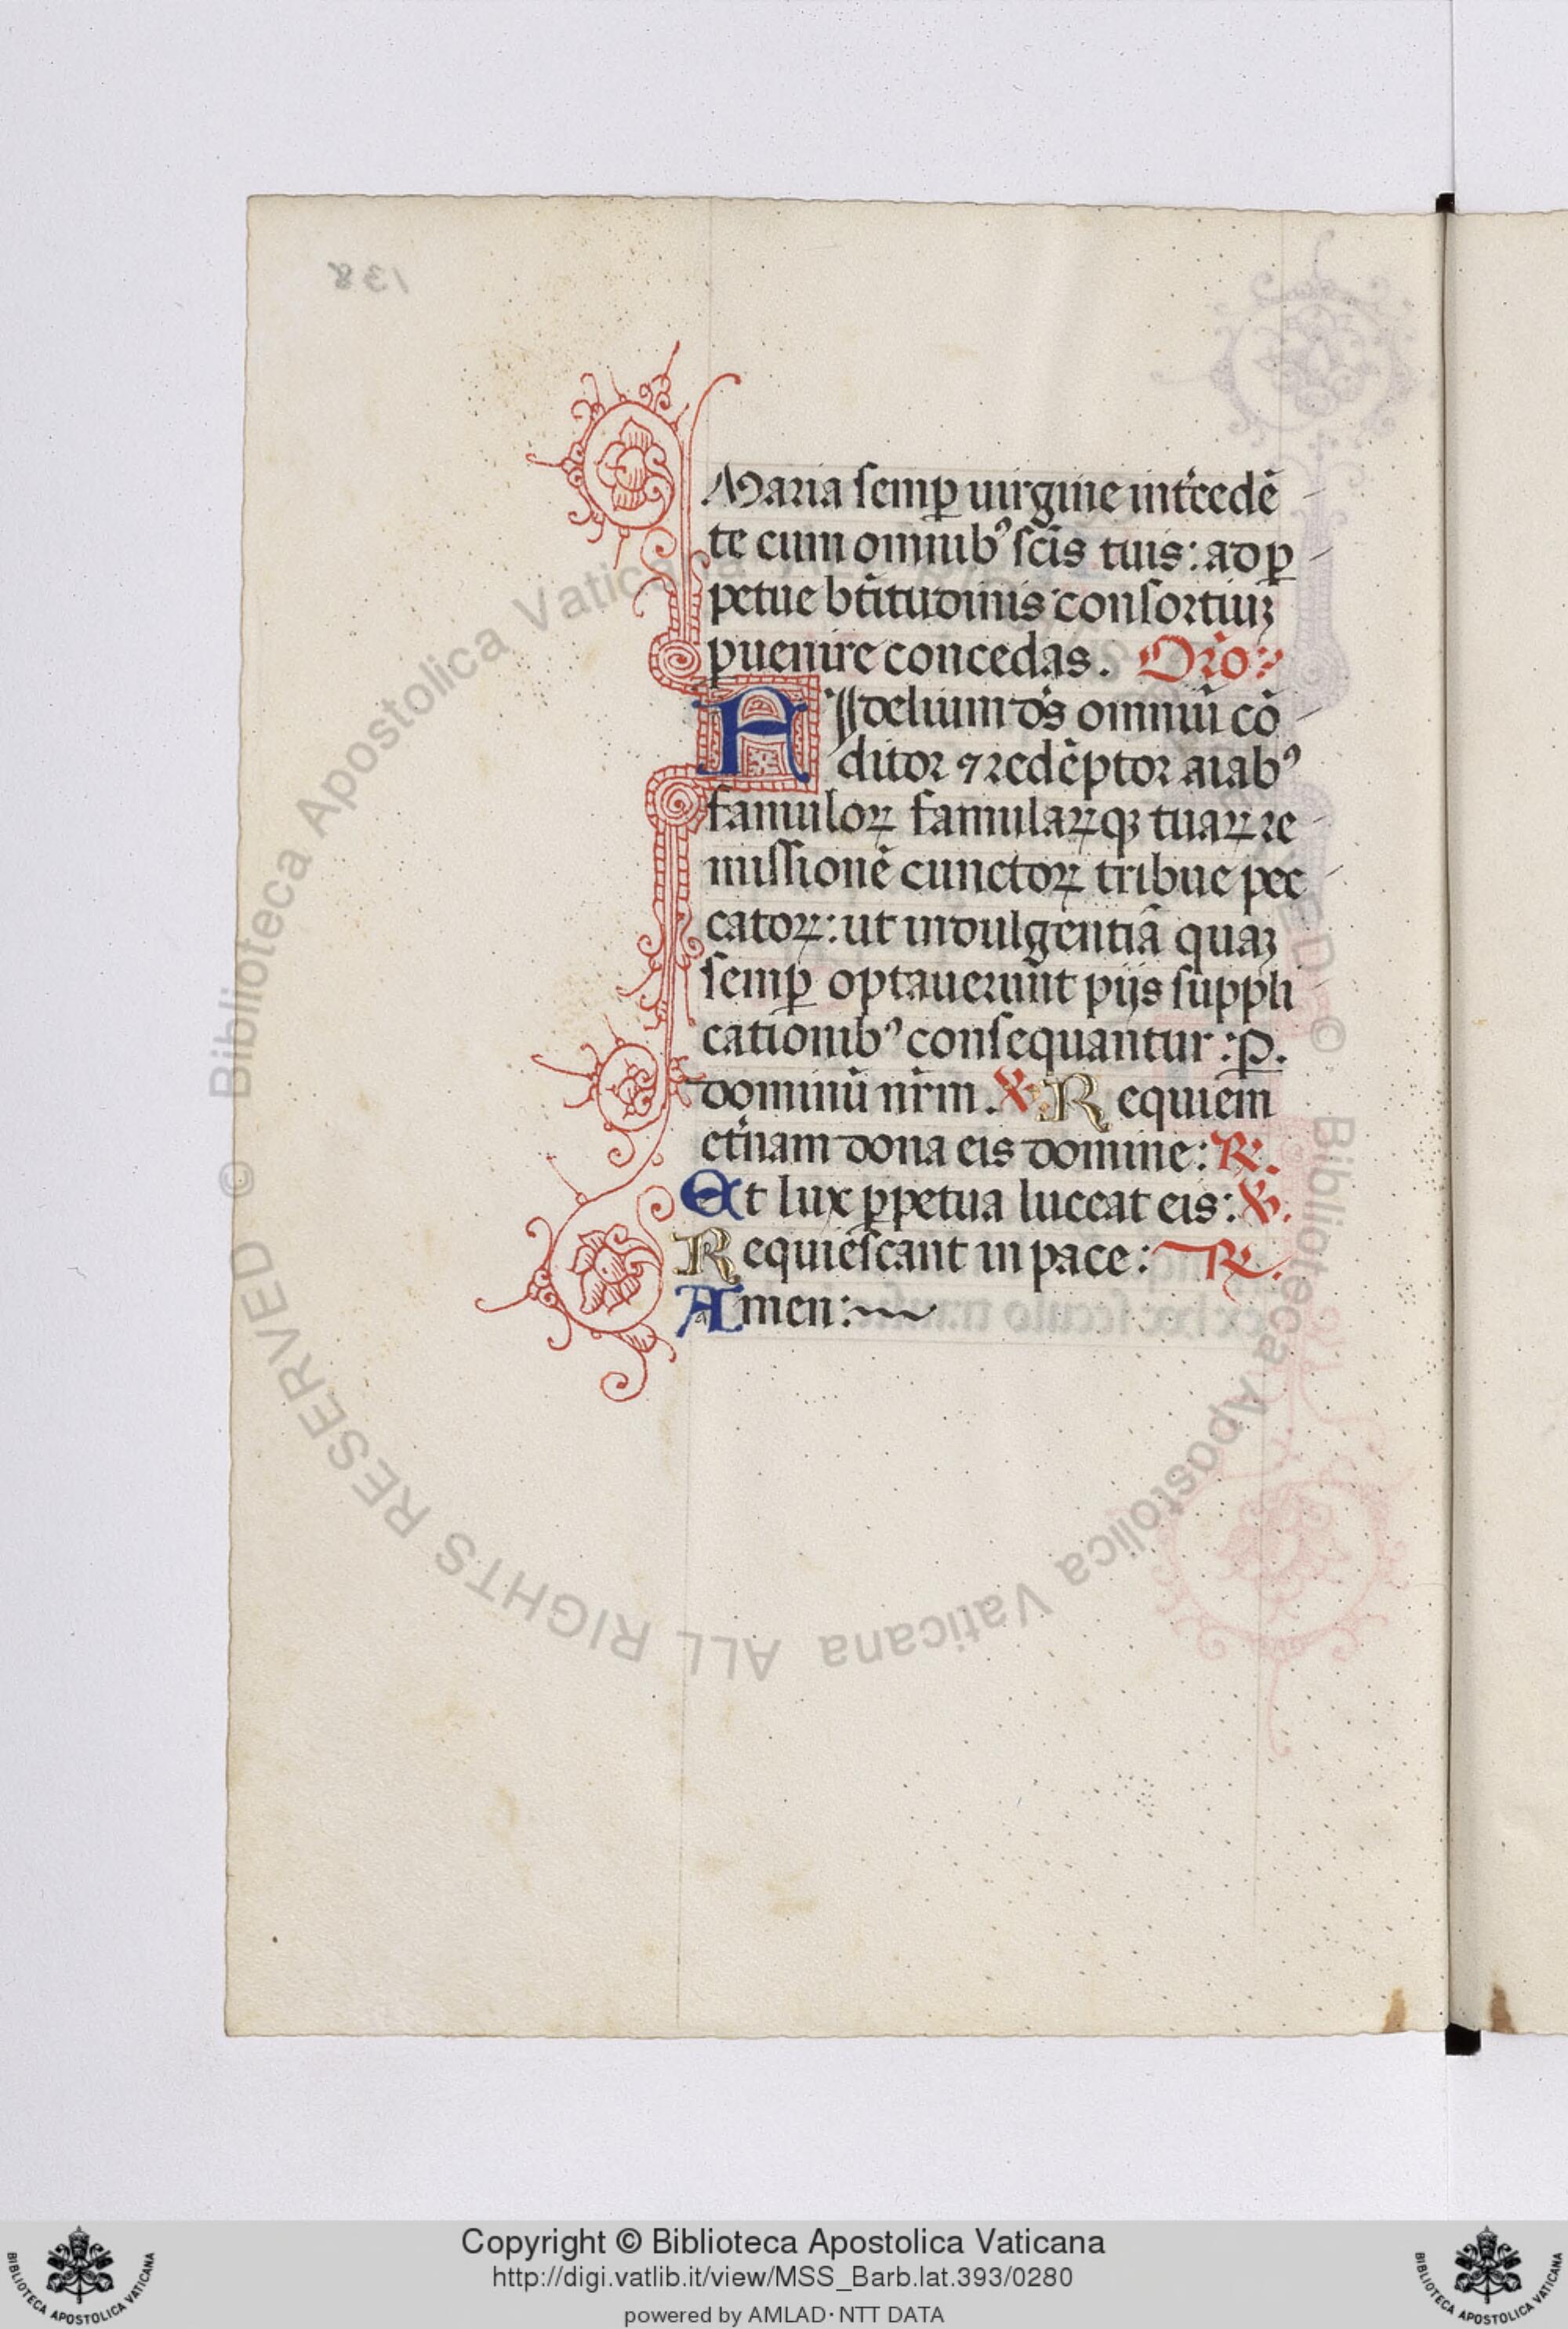 138
Maria semꝑ uirgine int͛cedē
te cum omnib⁹ sc̄is tuis: ad ꝑ
petue bt̄itudinis consortiuꝫ
puenire concedas. Or̄o:
Fidelium ds̄ omniū cō
ditor ⁊ redēptor aīab⁹
famuloꝝ famulaꝝqꝫ tuaꝝ re
missionē cunctoꝝ tribue pec
catoꝝ: ut indulgentiā quaꝫ
semꝑ optauerūt piis suppli
cationib⁹ consequantur: ꝑ.
dominū nr̄m. ℣. Requiem
et͛nam dona eis domine: ℟.
Et lux ꝑpetua luceat eis: ℣.
Requiescant in pace: ℟.
Amen:
© Biblioteca Apostolica Vaticana ALL RIGHTS RESERVED
Copyright © Biblioteca Apostolica Vaticana
http://digi.vatlib.it/view/MSS_Barb.lat.393/0280
powered by AMLAD · NTT DATA
BIBLIOTECA APOSTOLICA VATICANA
BIBLIOTECA APOSTOLICA VATICANA